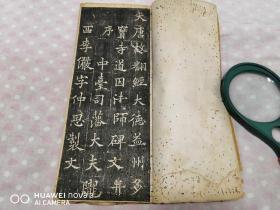 大唐故翻經大德益州多
寶寺道因法師碑文并
序 中臺司藩大夫隴
西李儼字仲思製文
HUAWEI nova
CAMERA